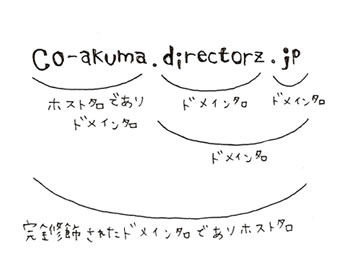 co-akuma.directorz.jp
ホスト名であり
ドメイン名
ドメイン名
ドメイン名
ドメイン名
完全修飾されたドメイン名でありホスト名